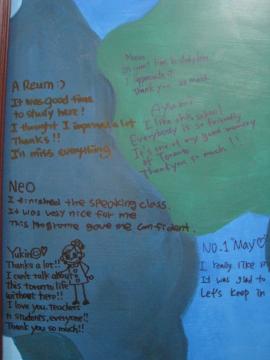 A Reum :)
It was good time
to study here!
I thought I improved a lot
Thanks!!
I'm miss everything
your time to
I appreciate it.
thank you so much
Ayumi
I like this school
Everybody is so friendly
It's one of my good memory
of Toronto
Thank you so much!!
Neo
I finished the speaking class.
It was very nice for me
This programe gave me confident.
Yukino
Thanks a lot!!
I can't talk about
this toronto life
without here!!
I love you. Teachers
n students, everyone!!
Thank you so much!!
No.1 May♡
I really like
It was glad to
Let's keep in